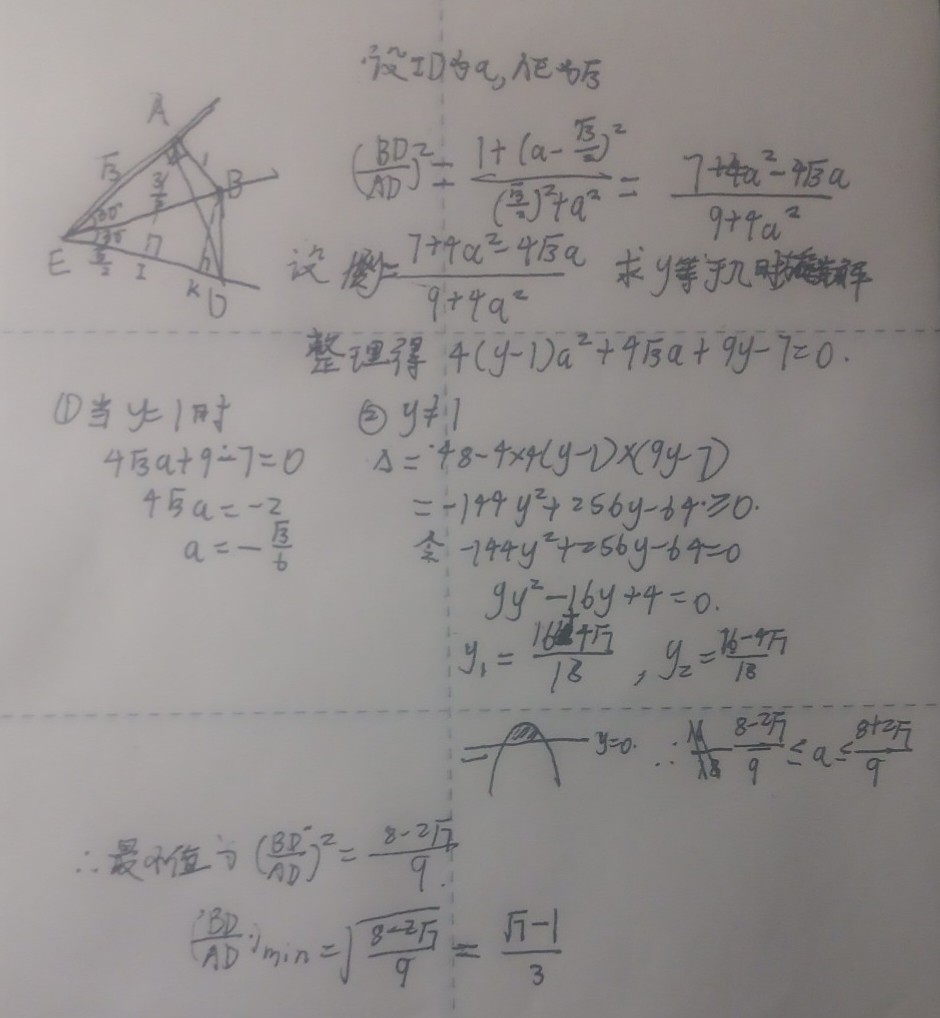 设ID为a, AE为√3
A
√3
1
3/2
B
30°
E
√3/2
I
K
D
(BD/AD)² = (1+(a-√3/2)²)/((√3/2)²+a²) = (7+4a²-4√3a)/(9+4a²)
设 y=(7+4a²-4√3a)/(9+4a²) 求y等于几时
整理得 4(y-1)a²+4√3a+9y-7=0.
①当y=1时
4√3a+9-7=0
4√3a=-2
a=-√3/6
② y≠1
Δ=48-4×4(y-1)×(9y-7)
=-144y²+256y-64≥0.
令 -144y²+256y-64=0
9y²-16y+4=0.
y₁=(16+4√7)/18, y₂=(16-4√7)/18
y=0. ∴ (8-2√7)/9 ≤ a ≤ (8+2√7)/9
∴最小值为(BD/AD)²=(8-2√7)/9.
(BD/AD)min=√((8-2√7)/9)=(√7-1)/3